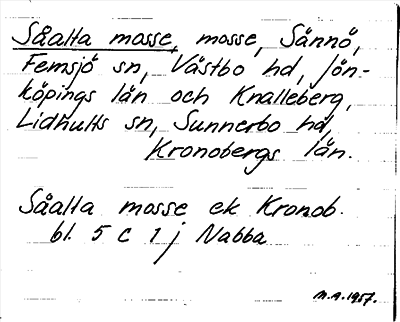 Såalta mosse, mosse, Sännö,
Femsjö sn, Västbo hd, Jön-
köpings län och Knalleberg,
Lidhults sn, Sunnerbo hd,
Kronobergs län.
Såalta mosse ek Kronob.
bl. 5 C 1 j Nabba
M.A. 1957.